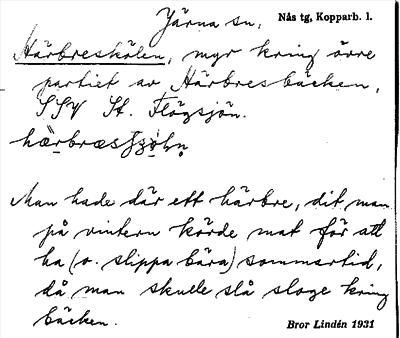 Järna sn. Nås tg, Kopparb. l.
Härbreskölen, myr kring övre
partiet av Härbresbäcken,
SSV St. Flögsjön.
Man hade där ett härbre, dit man
på vintern körde mat för att
ha (o. slippa bära) sommartid,
då man skulle slå sloge kring
bäcken.
Bror Lindén 1931